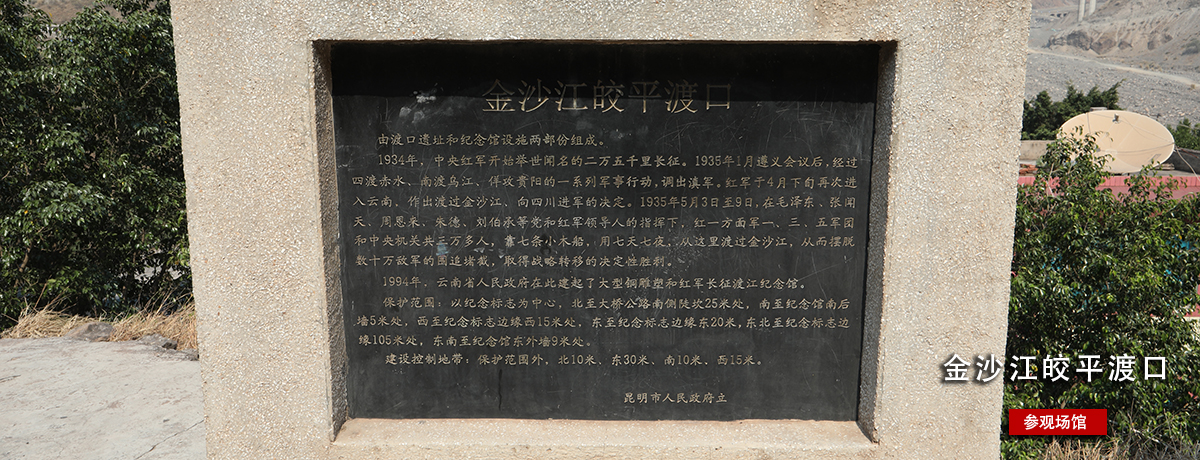 金沙江皎平渡口
由渡口遗址和纪念馆设施两部份组成。
1934年，中央红军开始举世闻名的二万五千里长征。1935年1月遵义会议后，经过
四渡赤水、南渡乌江、佯攻贵阳的一系列军事行动，调出滇军。红军于4月下旬再次进
入云南，作出渡过金沙江、向四川进军的决定。1935年5月3日至9日，在毛泽东、张闻
天、周恩来、朱德、刘伯承等党和红军领导人的指挥下，红一方面军一、三、五军团
和中央机关共三万多人，靠七条小木船，用七天七夜，从这里渡过金沙江，从而摆脱
数十万敌军的围追堵截，取得战略转移的决定性胜利。
1994年，云南省人民政府在此建起了大型铜雕塑和红军长征渡江纪念馆。
保护范围：以纪念标志为中心，北至大桥公路南侧陡坎25米处，南至纪念馆南后
墙5米处，西至纪念标志边缘西15米处，东至纪念标志边缘东20米，东北至纪念标志边
缘105米处，东南至纪念馆东外墙9米处。
建设控制地带：保护范围外，北10米、东30米、南10米、西15米。
昆明市人民政府立
金沙江皎平渡口
参观场馆